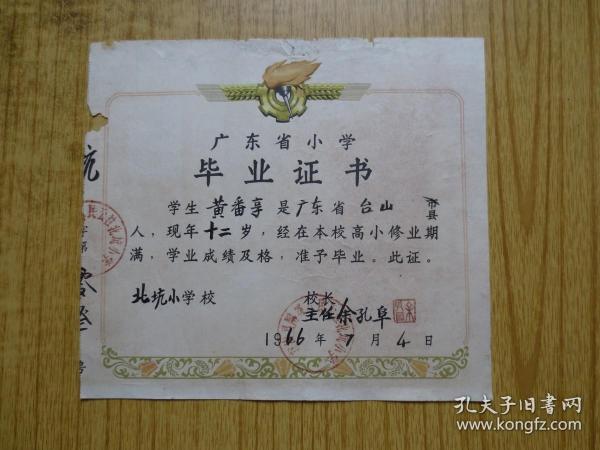 广东省小学
毕业证书
学生 黄番享 是广东省 台山 市县
人，现年十二岁，经在本校高小修业期
满，学业成绩及格，准予毕业。此证。
北坑小学校
校长
主任余孔阜
1966年7月4日
坑
孔夫子旧书网
www.kongfz.com